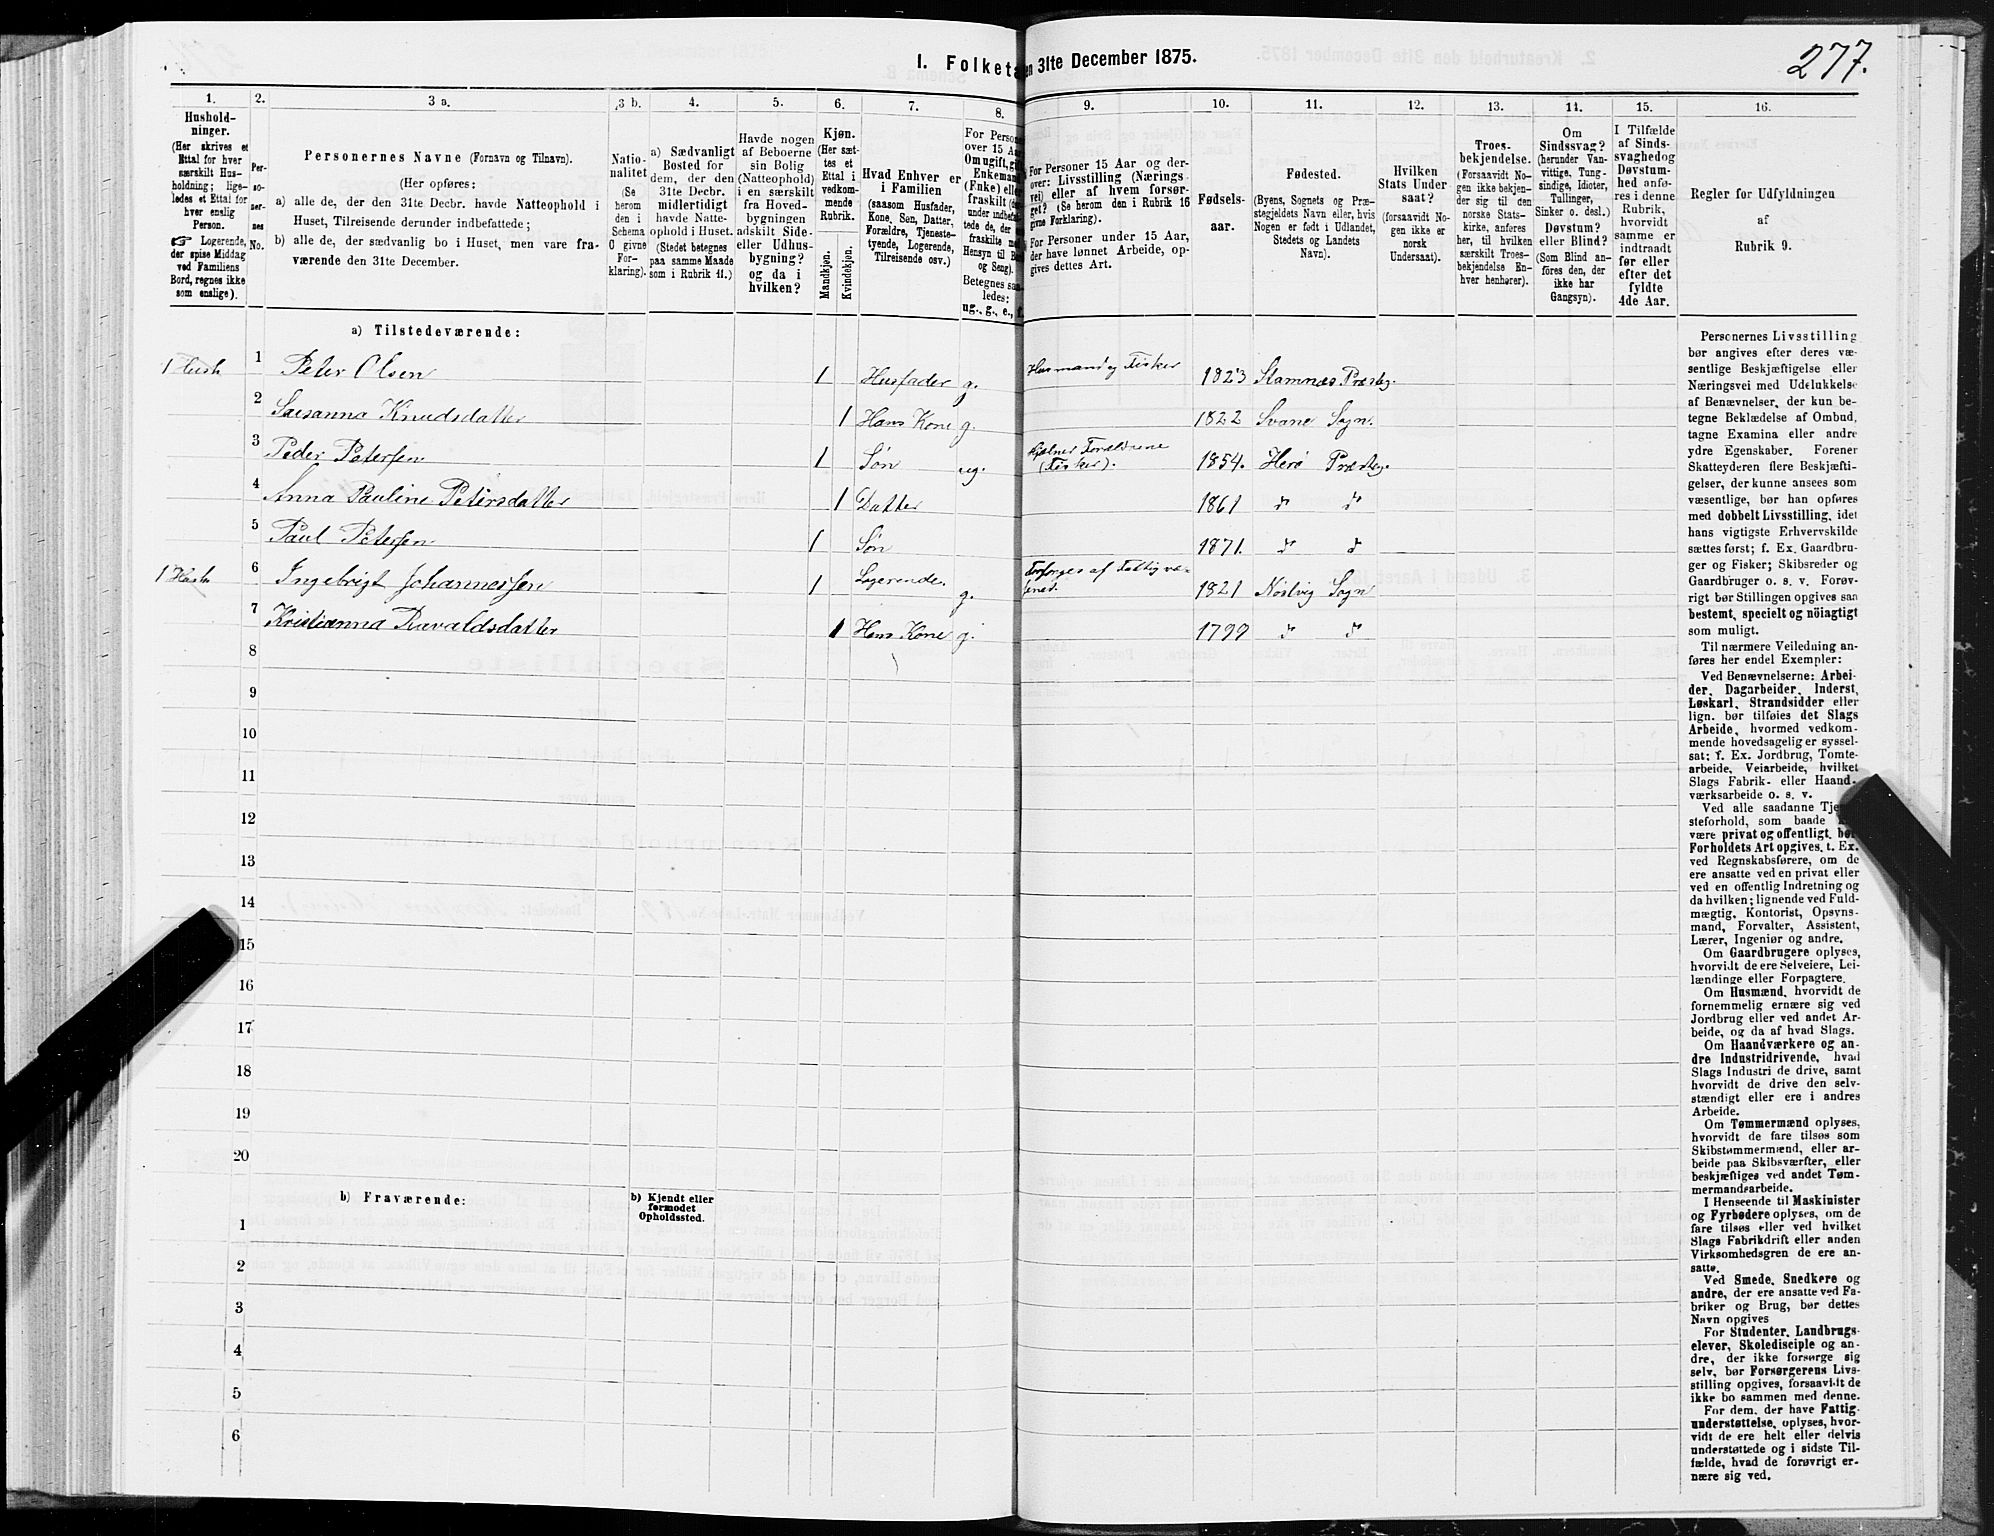 I. Folketæ en 31te December 1875.
277.
1.
2.
3 a.
3 b.
4.
5.
6.
7.
8.
9.
10.
11.
12.
13.
14.
15.
16.
Hushold-
ninger.
(Her skrives et
Ettal for hver
særskilt Hus-
holdning; lige-
ledes et Ettal for
hver enslig
Person.
☞ Logerende,
der spise Middag
ved Familiens
Bord, regnes ikke
som enslige).
Per-
so-
ner-
nes
No.
Personernes Navne (Fornavn og Tilnavn).
(Her opføres:
a) alle de, der den 31te Decbr. havde Natteophold i
Huset, Tilreisende derunder indbefattede;
b) alle de, der sædvanlig bo i Huset, men vare fra-
værende den 31te December.
Natio-
nalitet
(Se
herom
den i
Schema
O givne
For-
klaring).
a) Sædvanligt
Bosted for
dem, der den
31te Decbr.
midlertidigt
havde Natte-
ophold i Huset.
(Stedet betegnes
paa samme Maade
som i Rubrik 11.)
Havde nogen
af Beboerne
sin Bolig
(Natteophold)
i en særskilt
fra Hoved-
bygningen
adskilt Side-
eller Udhus-
bygning?
og da i
hvilken?
Kjøn.
(Her sæt-
tes et
Ettal i
vedkom-
mende
Rubrik.
Mandkjøn.
Kvindekjøn.
Hvad Enhver er
i Familien
(saasom Husfader,
Kone, Søn, Datter,
Forældre, Tjeneste-
tyende, Logerende,
Tilreisende osv.)
For Persone
over 15 Aar
Om ugift, gift
Enkemand
(Enke) eller
fraskilt
under indbefat
tede de, der
fraskilte m
Hensyn til B
og Seng).
Betegnes saa-
ledes:
ug., g., e., f.
For Personer 15 Aar og der-
over: Livsstilling (Nærings-
vei) eller af hvem forsør-
get? (Se herom den i Rubrik 16
givne Forklaring.)
For Personer under 15 Aar,
der have lønnet Arbeide, op-
gives dettes Art.
Fødsels-
aar.
Fødested.
(Byens, Sognets og Præ-
stegjeldets Navn eller, hvis
Nogen er født i Udlandet,
Stedets og Landets
Navn).
Hvilken
Stats Under-
saat?
(forsaavidt No-
gen ikke er
norsk
Undersaat).
Troes-
bekjendelse.
(Forsaavidt No-
gen ikke bekjen-
der sig til den
norske Stats-
kirke, anføres
her, til hvilken
særskilt Troes-
bekjendelse En-
hver henhører).
Om
Sindssvag?
(herunder Van-
vittige, Tung-
sindige, Idioter,
Tullinger,
Sinker o. desl.)
Døvstum?
eller Blind?
(Som Blind an-
føres den, der
ikke har
Gangsyn).
I Tilfælde
af Sinds-
svaghed og
Døvstum-
hed anfø-
res i denne
Rubrik,
hvorvidt
samme er
indtraadt
før eller
efter det
fyldte
4de Aar.
Regler for Udfyldningen
af
Rubrik 9.
a) Tilstedeværende:
1 Hush 1 Peter Olsen 1 Husfader g. Husmand og Fisker 1823 Stamnæs Præstg.
2 Susanna Knudsdatter 1 Hans Kone g. 1822 Svane Sogn.
3 Peder Petersen 1 Søn ug. Hjælper Forældrene (Fisker). 1854. Herø Præstg.
4 Anna Pauline Petersdatter 1 Datter 1861 " "
5 Paul Petersen 1 Søn 1871. " "
1 Hush 6 Ingebrigt Johannessen 1 Logerende. g. Forsørges af Fattigvæ- senet. 1821 Nostvig Sogn
7 Kristianna 1 Hans Kone g. 1799 " "
8
9
10
11
12
13
14
15
16
17
18
19
20
b) Fraværende:
b) Kjendt eller
formodet
Opholdssted.
1
2
3
4
5
6
Personernes Livsstilling
bør angives efter deres væ-
sentlige Beskjæftigelse eller
Næringsvei med Udelukkelse
af Benævnelser, der kun be-
tegne Beklædelse af Ombud,
tagne Examina eller andre
ydre Egenskaber. Forener
Skatteyderen flere Beskjæfti-
gelser, der kunne ansees som
væsentlige, bør han opføres
med dobbelt Livsstilling, idet
hans vigtigste Erhvervskilde
sættes først; f. Ex. Gaardbru-
ger og Fisker; Skibsreder og
Gaardbruger o. s. v. Forøv-
rigt bør Stillingen opgives saa
bestemt, specielt og nöiagtigt
som muligt.
Til nærmere Veiledning an-
føres her endel Exempler:
Ved Benævnelserne: Arbei-
der, Dagarbeider, Inderst,
Løskarl, Strandsidder eller
lign. bør tilføies det Slags
Arbeide, hvormed vedkom-
mende hovedsagelig er syssel-
sat; f. Ex. Jordbrug, Tomte-
arbeide, Veiarbeide, hvilket
Slags Fabrik- eller Haand-
værksarbeide o. s. v.
Ved alle saadanne Tje
steforhold, som baade
være privat og offentligt, bør
Forholdets Art opgives, t. Ex.
ved Regnskabsførere, om de
ere ansatte ved en privat eller
ved en offentlig Indretning og
da hvilken; lignende ved Fuld-
mægtig, Kontorist, Opsyns-
mand, Forvalter, Assistent,
Lærer, Ingeniør og andre.
Om Gaardbrugere oplyses,
hvorvidt de ere Selveiere, Lei-
lændinge eller Forpagtere.
Om Husmænd, hvorvidt de
fornemmelig ernære sig ved
Jordbrug eller ved andet Ar-
beide, og da af hvad Slags.
Om Haandværkere og an-
dre Industridrivende, hvad
Slags Industri de drive, samt
hvorvidt de drive den selv-
stændigt eller ere i andres
Arbeide.
Om Tømmermænd oplyses,
hvorvidt de fare tilsøs som
Skibstømmermænd, eller ar-
beide paa Skibsværfter, eller
beskjæftiges ved andet Tøm-
mermandsarbeide.
I Henseende til Maskinister
og Fyrbødere oplyses, om de
fare tilsøs eller ved hvilket
Slags Fabrikdrift eller anden
Virksomhedsgren de ere an-
satte.
Ved Smede, Snedkere og
andre, der ere ansatte ved Fa-
briker og Brug, bør dettes
Navn opgives
For Studenter, Landbrugs-
elever, Skoledisciple og an-
dre, der ikke forsørge sig
selv, bør Forsørgerens Livs-
stilling opgives, forsaavidt de
ikke bo sammen med denne.
For dem, der have Fattig-
understøttelse, oplyses, hvor-
vidt de ere helt eller delvis
understøttede og i sidste Til-
fælde, hvad de forøvrigt er-
nære sig ved.